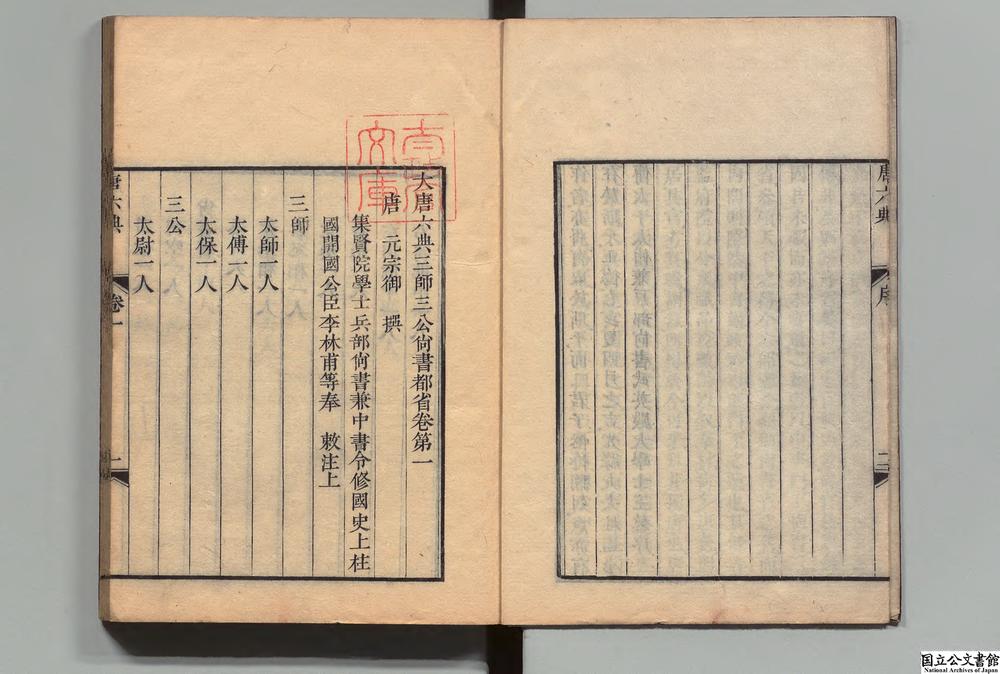 唐六典 序 二
大唐六典三師三公尙書都省卷第一
唐 元宗御 撰
集賢院學士兵部尙書兼中書令修國史上柱
國開國公臣李林甫等奉 敕注上
三師
太師一人
太傅一人
太保一人
三公
太尉一人
唐六典 卷一 一
文庫
国立公文書館
National Archives of Japan